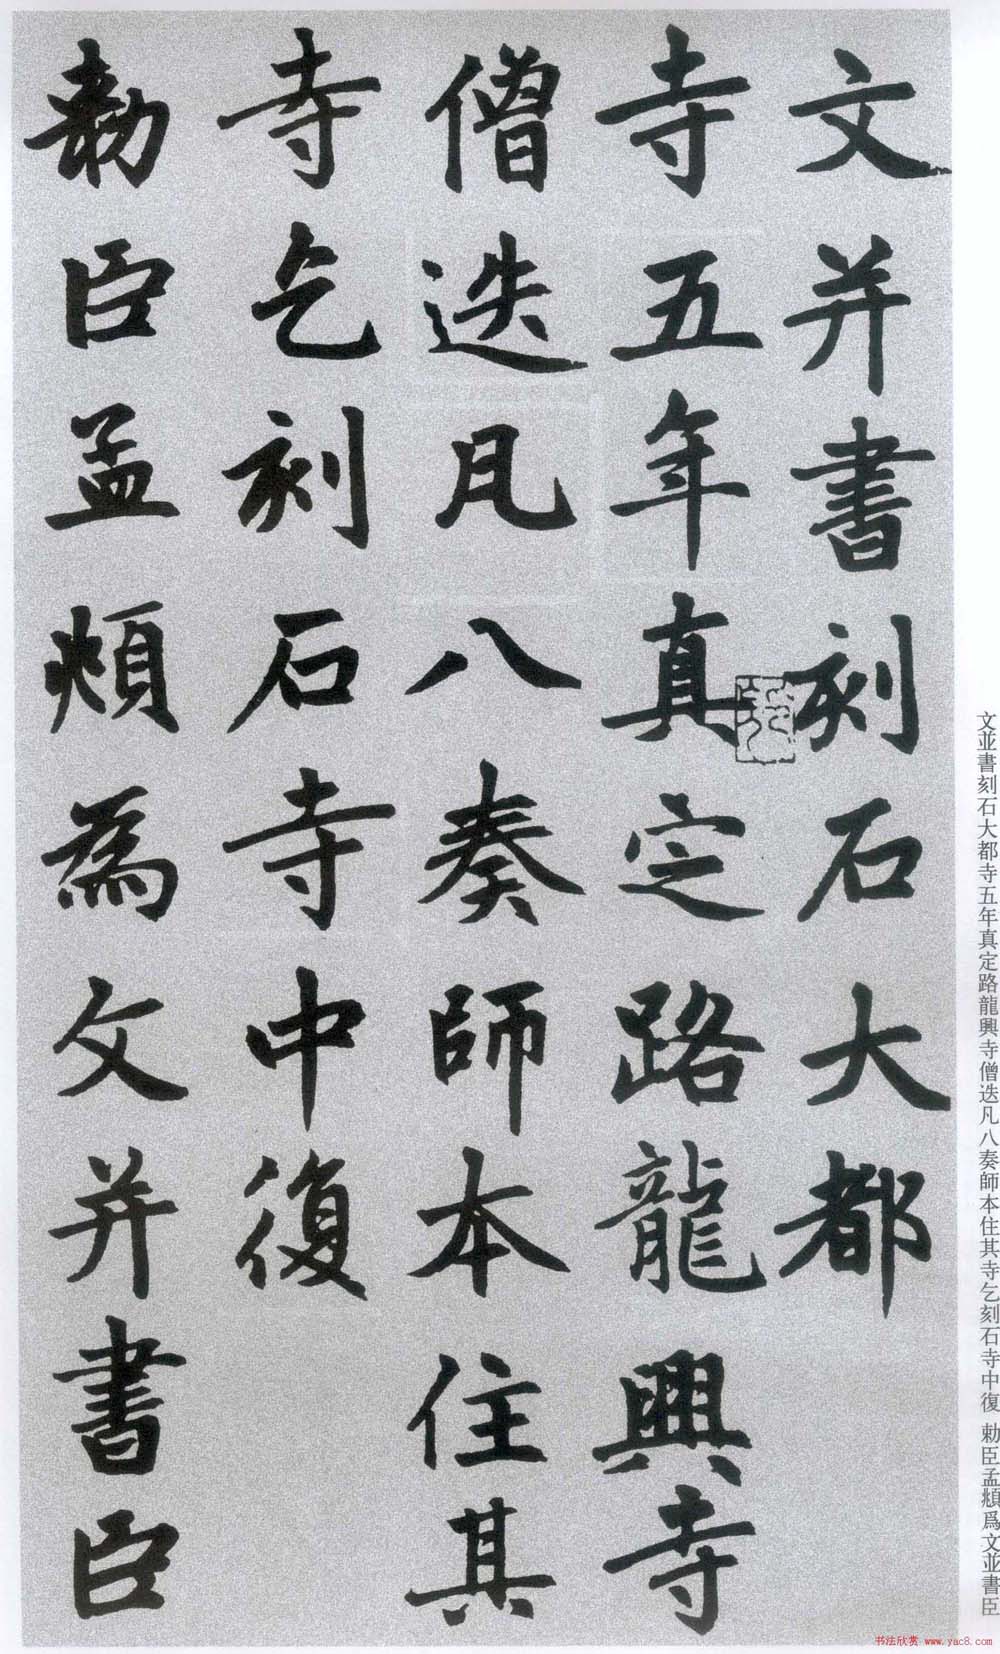 文并書刻石大都
寺五年真定路龍興寺
僧迭凡八奏師本住其
寺乞刻石寺中復
勅臣孟頫為文并書臣
文並書刻石大都寺五年真定路龍興寺僧迭凡八奏師本住其寺乞刻石寺中復 勅臣孟頫爲文並書臣
书法欣赏 www.yac8.com